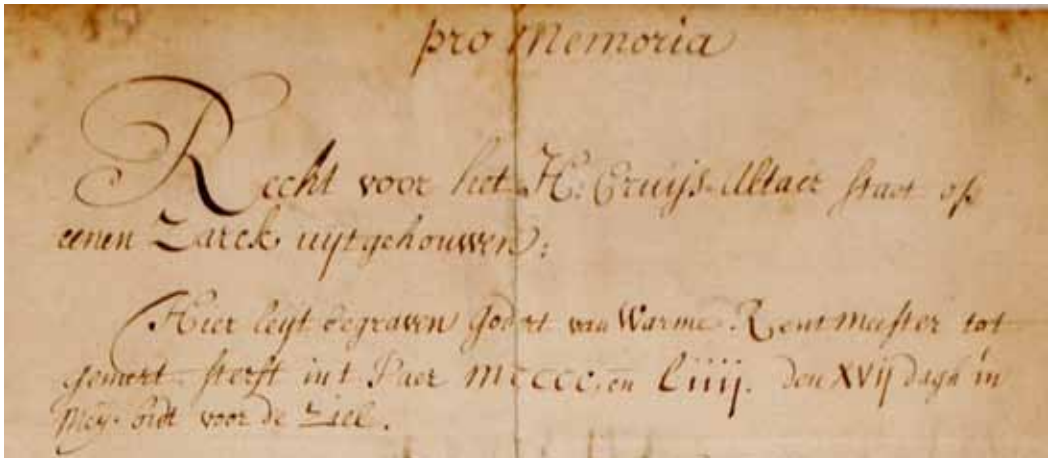 pro Memoria
Recht voor het H: Cruijs-Altaer staat op
eenen Zarck uijtgehouwen:
Hier leijt begraven Godert van Warme Rentmeester tot
gemert sterft int Jaer MCCCC: en Liiij. den XVij dagh in
Meij. bidt voor de ziel.